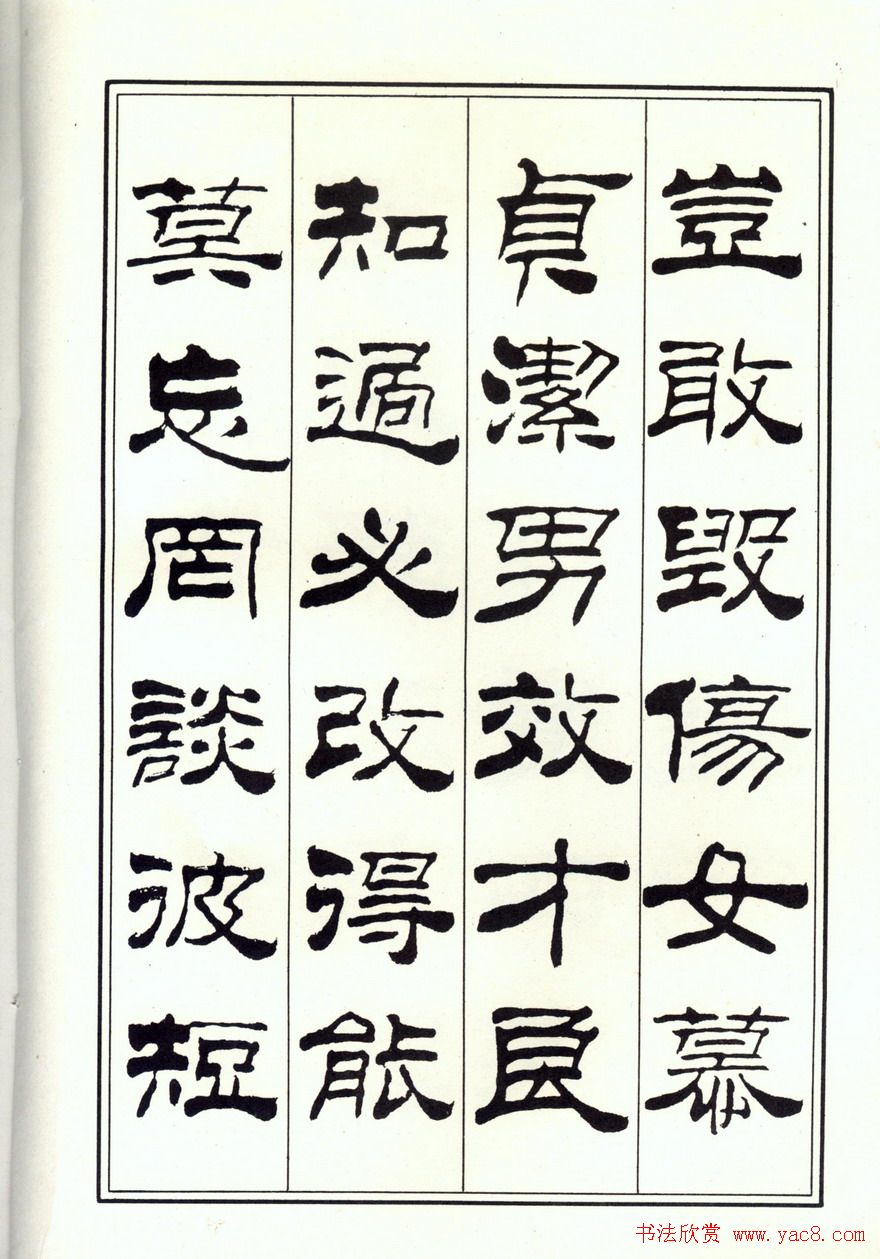 豈敢毀傷女慕
貞潔男效才良
知過必改得能
莫忘罔談彼短
书法欣赏 www.yac8.com